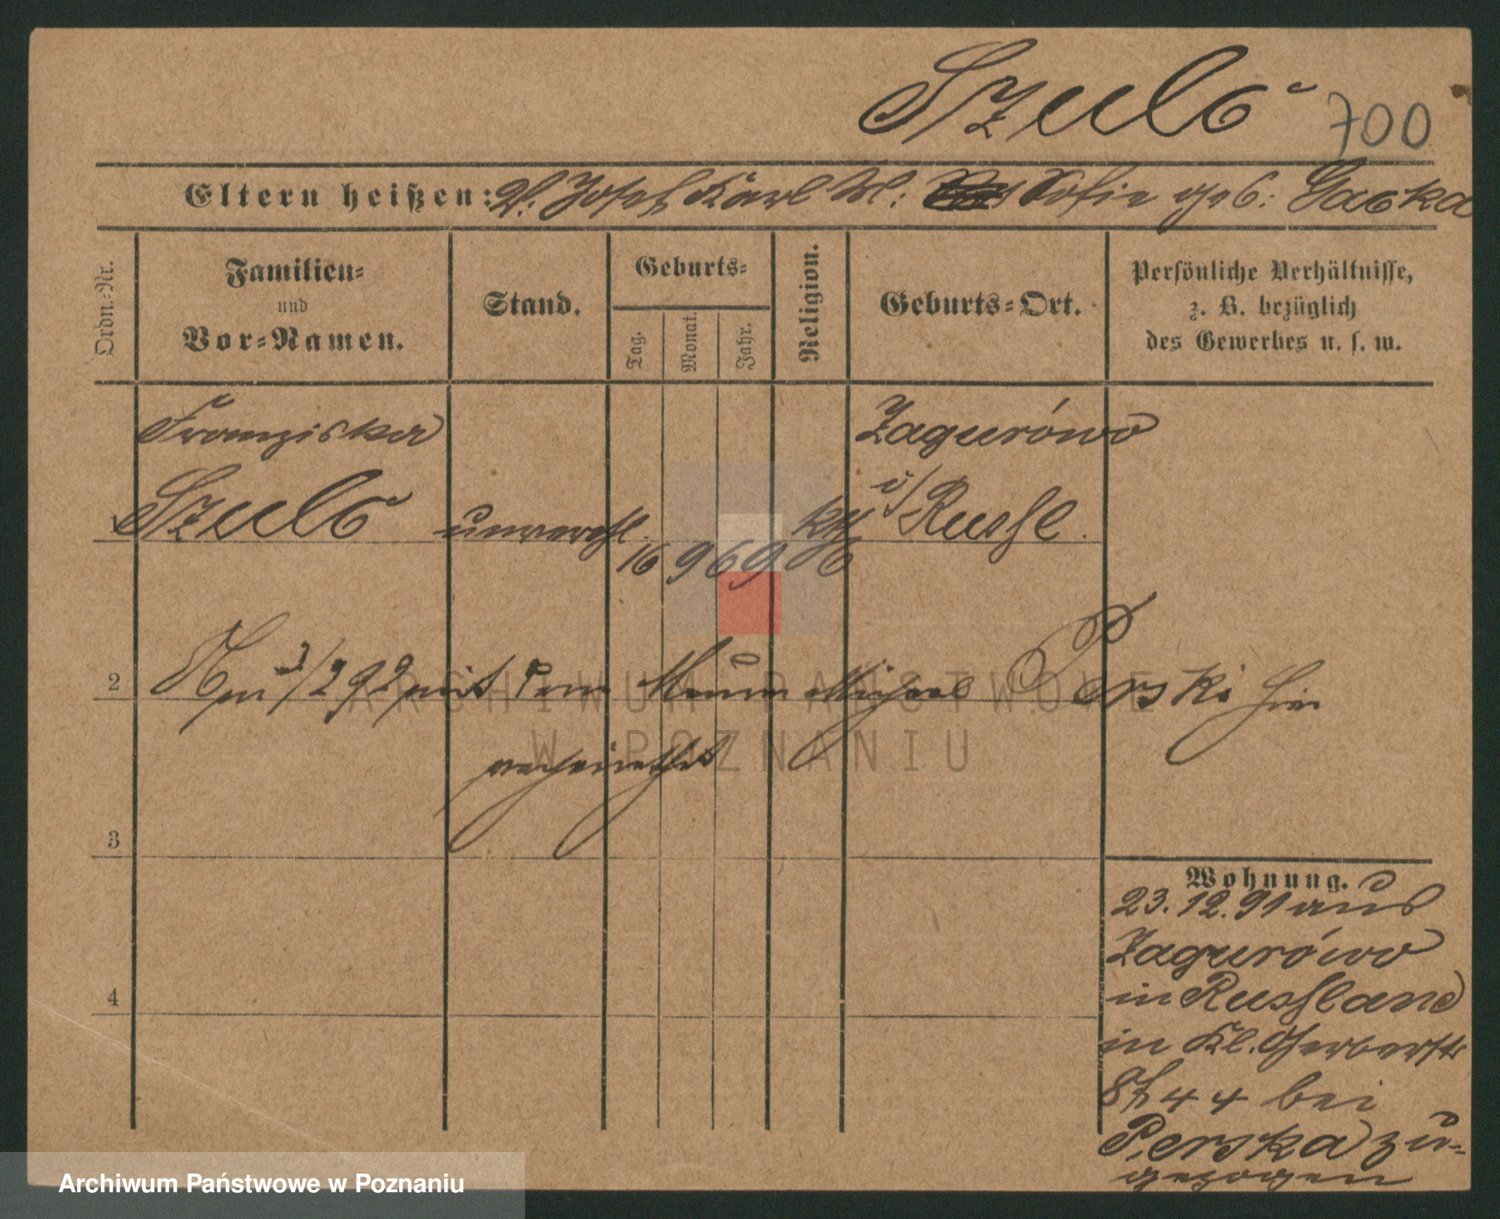 Szulc 700
Eltern heißen: V. Josef Karl M: Sofie geb: Gacka
Ordn.-Nr.
Familien-
und
Vor-Namen.
Stand.
Geburts-
Tag.
Monat.
Jahr.
Religion.
Geburts-Ort.
Persönliche Verhältnisse,
z. B. bezüglich
des Gewerbes u. s. w.
Franziska
Szulc
unverehl.
16 9 69
kth
Zagurówo
i/Russl.
1
2
Am 3/2 92 mit dem Maurer Michael Perski hier
verheirathet
3
4
Wohnung.
23.12.91 aus
Zagurówo
in Russland
in Kl. Gerberstr
8 44 bei
Perska zu-
gezogen
ARCHIWUM PAŃSTWOWE
W POZNANIU
Archiwum Państwowe w Poznaniu